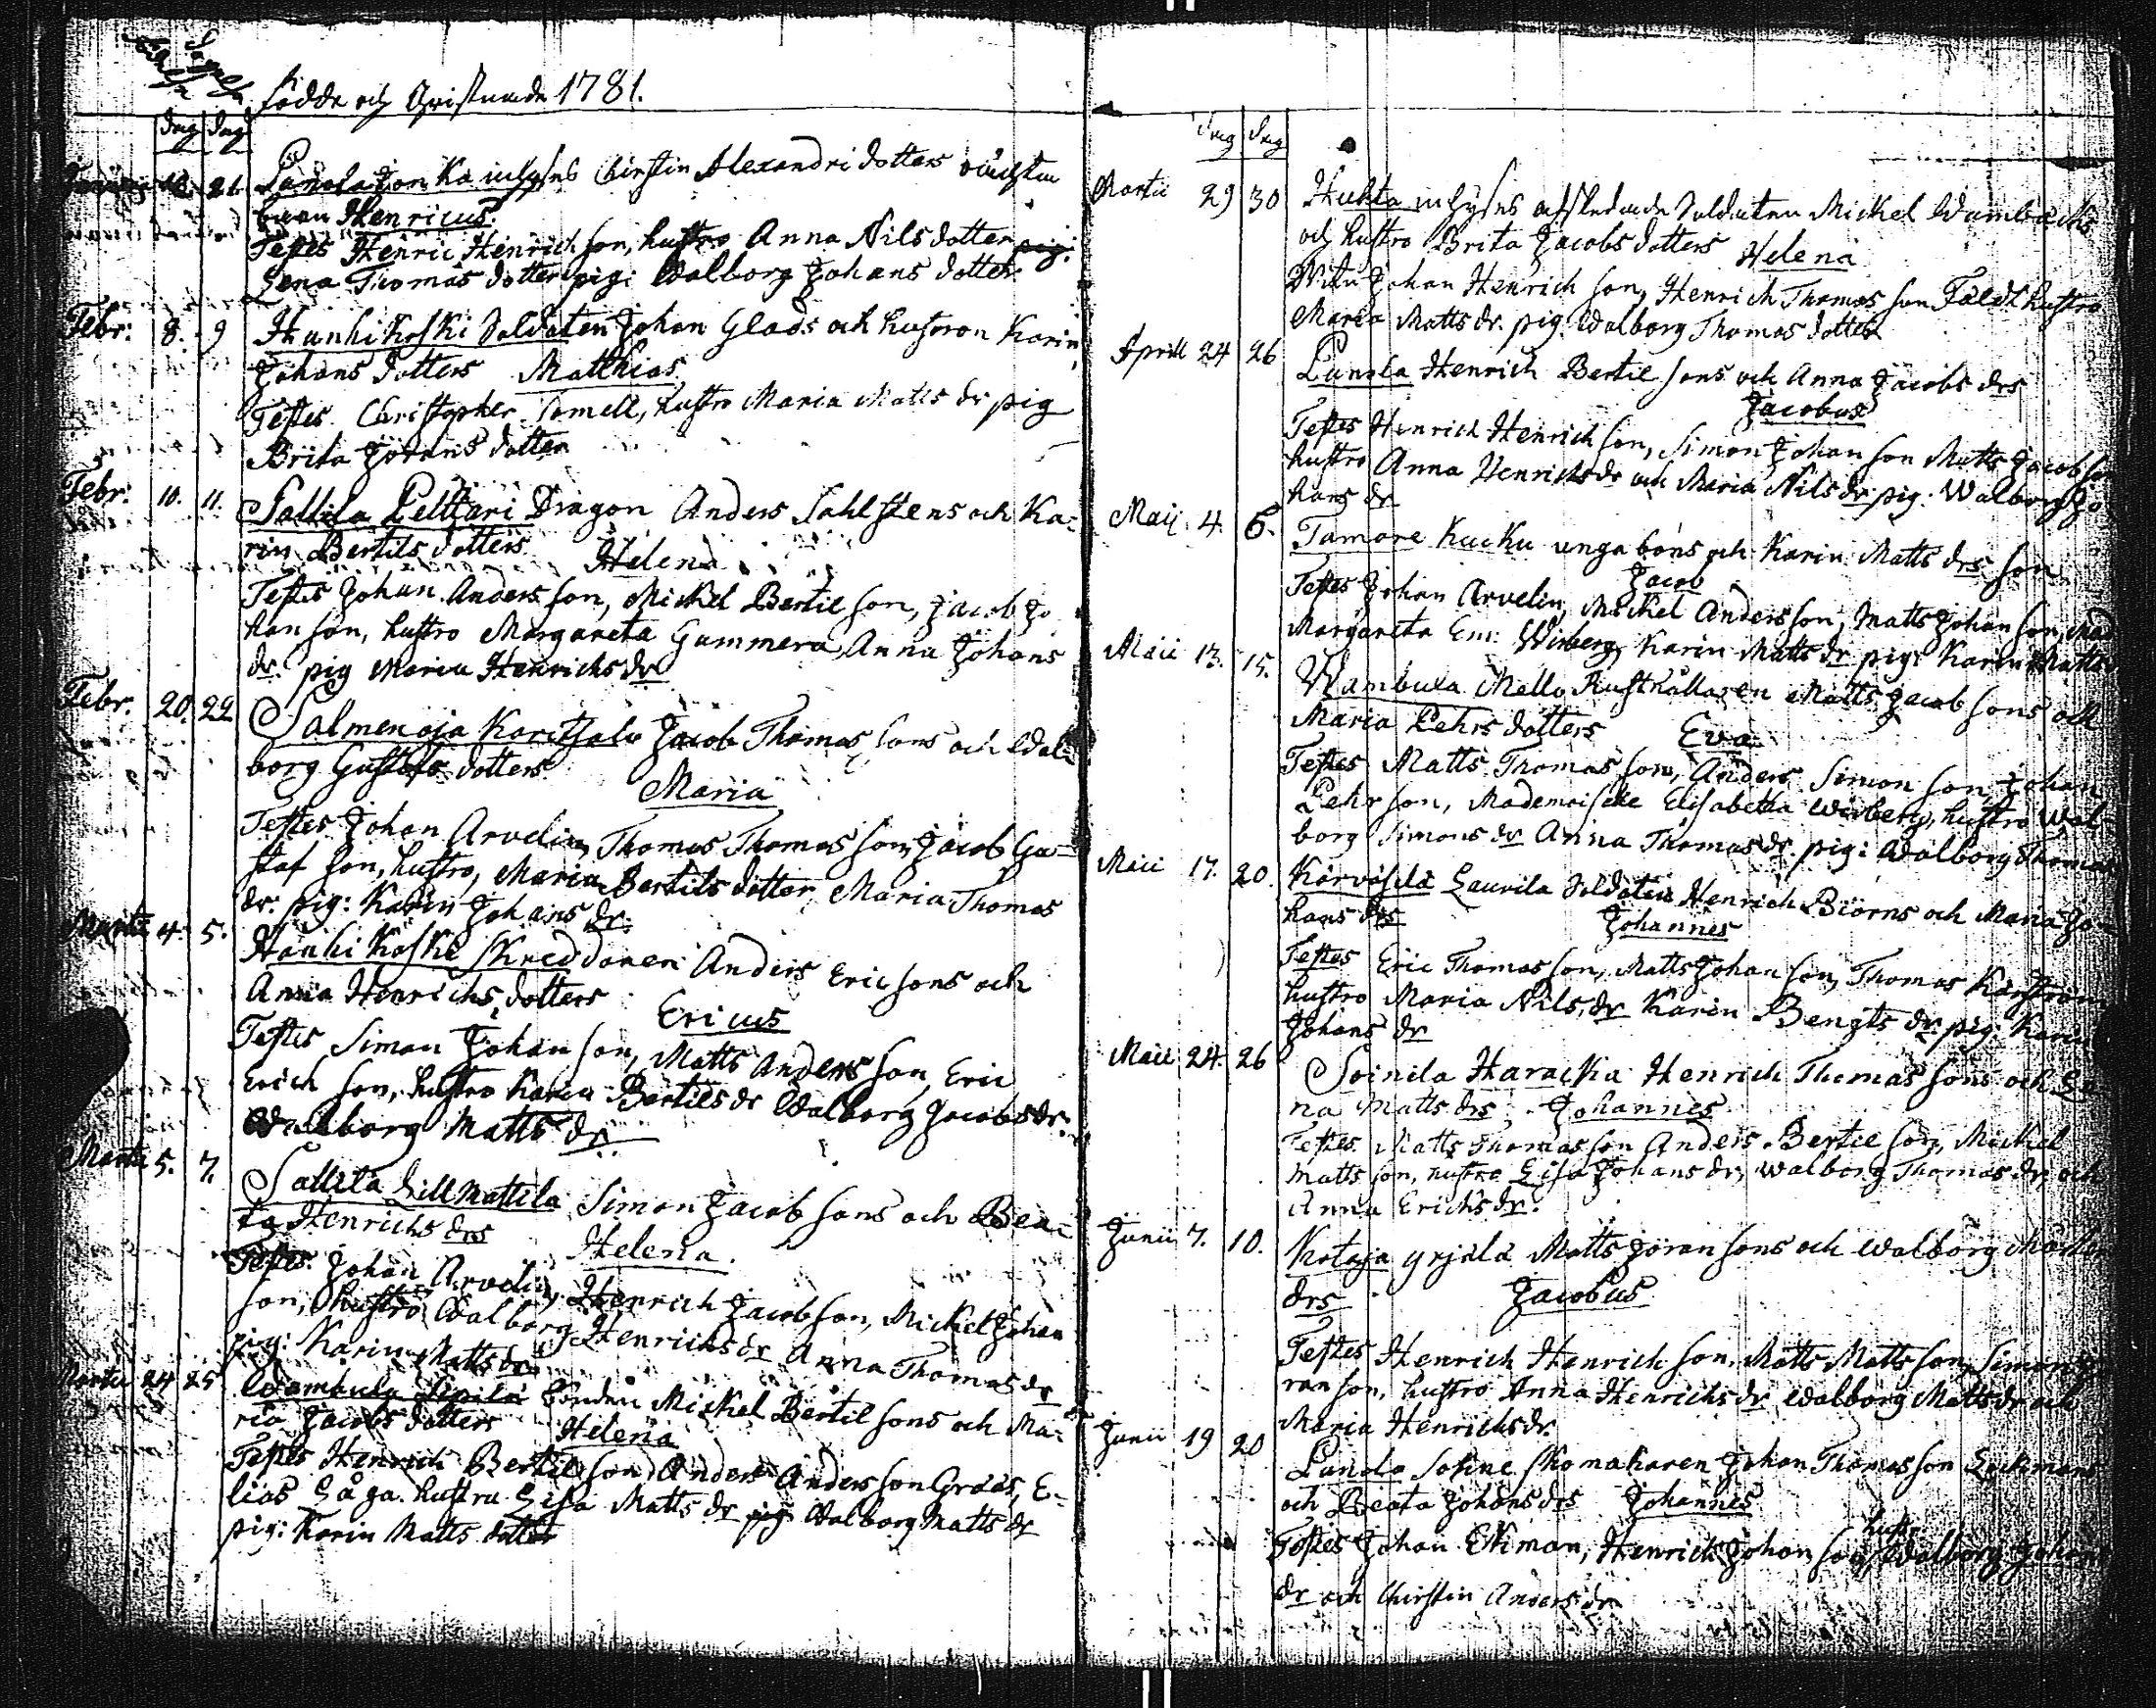 födde och Christnade 1781.
dag dag
21. Henricus
Testes Henric Henrichson, hustro Anna Nils dotter
Lena Thomas dotter pig: Walborg Johans dotter
Febr: 8. 9 Hanhikoski Soldaten Johan Glads och hustron Karin
Johans dotters Matthias
Testes Christopher Tomell, hustro Maria Matts dr pig
Brita Jörans dotter
Febr: 10. 11. Sallila Pelttari Dragon Anders Sahlstens och Ka-
rin Bertils dotters Helena
Testes Johan Andersson, Mickel Bertilson, Jacob Jo
hanson, hustro Margareta Gammera, Anna Johans
dr pig Maria Henrichs dr
Febr. 20. 22 Salmenoja Jacob Thomas sons och Wal-
borg Gustafs dotters
Maria
Testes Johan Arvelin, Thomas Thomasson, Jacob Gu-
staf son, hustro, Maria Bertils dotter, Maria Thomas
dr: pig: Karin Johans dr.
Martii 4. 5. Hanhikoski Skreddaren Anders Ericsons och
Anna Henrichs dotters Ericus
Testes Simon Johanson, Matts Andersson, Eric
Erich son, hustro Karin Bertils dr Walborg Jacobs dr.
Walborg Matts dr.
Martii 5. 7. Sallila Lill Mattila Simon Jacob sons och Bea-
ta Henrichs drs Helena.
Testes Johan Arvelin, Henrich Jacobson, Mickel Johan
son, hustro Walborg Henrichs dr Anna Thomas dr
pig: Karin Matts dr
Martii 24 25 Wambula bonden Mickel Bertil sons och Ma-
ria Jacobs dotters Helena
Testes Henrich Bertilson, Anders Andersson Gråås, E-
lias Såga. hustru Lisa Matts dr pig Walborg Matts dr
pig: Karin Matts dotter
dag dag
Martii 29 30 Huhta inhyses afskedade Soldaten Mickel
och hustro Brita Jacobs dotters Helena
Johan Henrich son, Henrich Thomas son Fäldt hustro
Maria Matts dr. pig. Walborg Thomas dotter
Aprill 24 26 Lanola Henrich Bertil sons och Anna Jacobs drs
Jacobus
Testes Henrich Henrich son, Simon Johan son Matts Jacob son
hustro Anna Henrichs dr och Maria Nils dr pig: Walborg Jo
hans dr
Maij 4. 6. Tamare Kucku unga bons och Karin Matts drs son
Jacob
Testes Johan Arvelin, Mickel Andersson, Matts Johan son, Mad
Margareta Em: Wirberg, Karin Matts dr pig: Karin Matts
Maii 13. 15. Wambula Mello Rusthållaren Matts Jacob sons och
Maria Pehrs dotters Eva
Testes Matts Thomas son, Anders Simon son, Johan
Pehr son, Mademoiselle Elisabetha Wirberg, hustro Wal-
borg Simons dr Anna Thomas dr pig: Walborg Thomas
Maii 17. 20. Körvöselä Laurila Soldaten Henrich Biörns och Maria Jo-
hans drs Johannes
Testes Eric Thomas son, Matts Johan son, Thomas Karström
hustro Maria Nils dr Karin Bengts dr pig: Karin
Johans dr
Maii 24. 26 Soinila Haracka Henrich Thomas sons och Le
na Matts drs Johannes
Testes Matts Thomas son Anders Bertil son, Mickel
Matts son, hustro Lisa Johans dr, Walborg Thomas dr, och
Anna Erichs dr.
Junii 7. 10. Kotaja Yrjälä Matts Jöran sons och Walborg Mårtens
drs Jacobus
Testes Henrich Henrich son, Matts Matts son, Simon Jö
ran son, hustro Anna Henrichs dr Walborg Matts dr och
Maria Henrichs dr.
Junii 19 20 Lanola Skomakaren Johan Thomas son
och Beata Johans drs Johannes
hustr
Testes Johan Ekman, Henrich Johan son, Walborg Johans
dr och Chirstin Anders dr